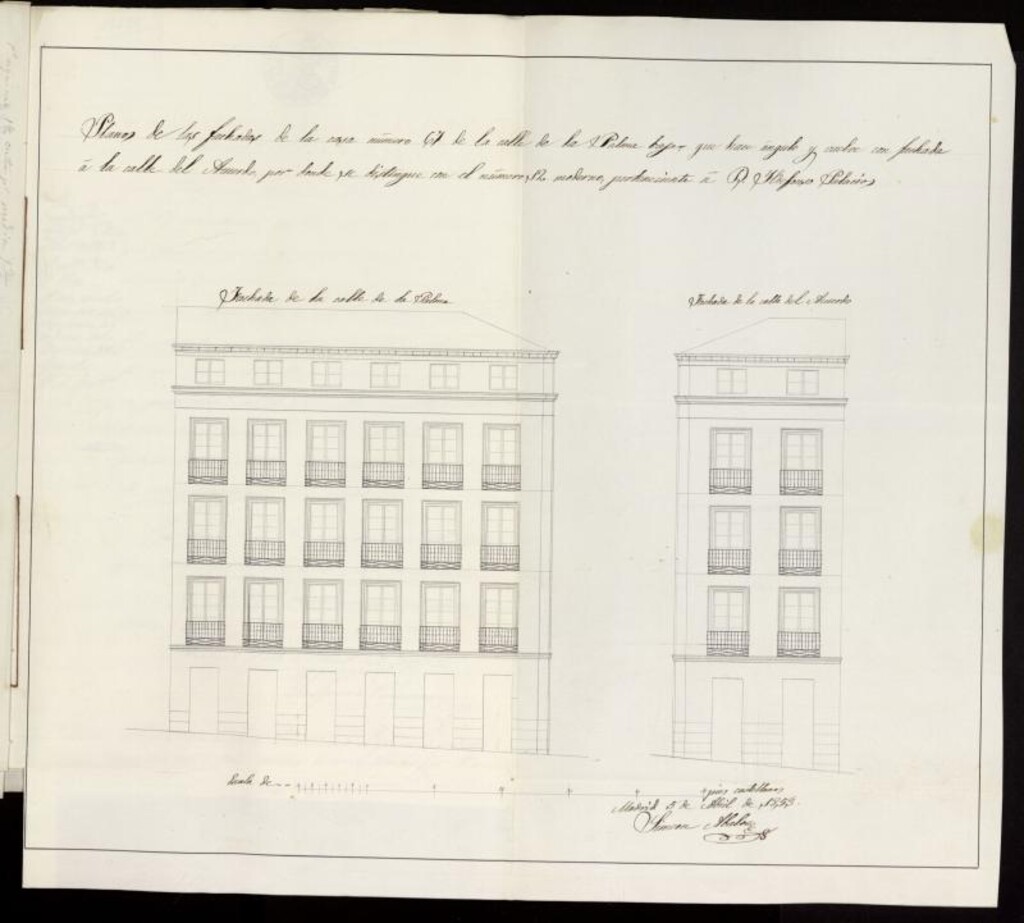 Planos de las fachadas de la casa número 67 de la calle de la Palma baja que hace ángulo y vuelve con fachada
á la calle del Acuerdo, por donde se distingue con el número 12 moderno, perteneciente á D. Ildefonso Palacios
Fachada de la calle de la Palma
Fachada de la calle del Acuerdo
Escala de
pies castellanos
Madrid 5 de Abril de 1853.
Simeon